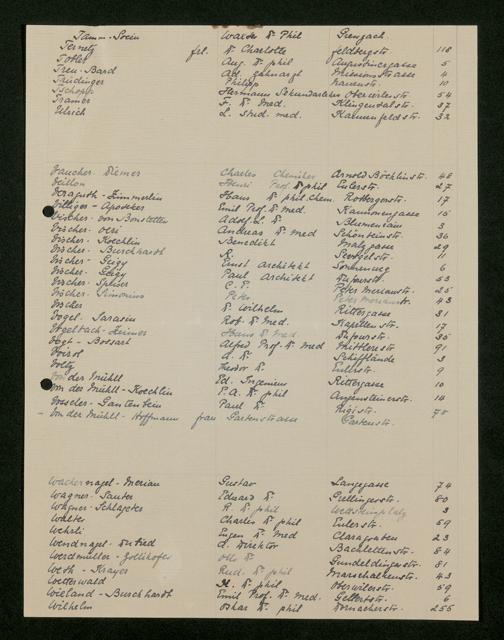 Tamm-Stein Walter Dr Phil Grenzach.
Ternetz frl. Dr Charlotte feldbergstr. 118
Tobler Aug. Dr phil Augustinergasse 5
Treu-Bard Ad. Zahnarzt Missionsstrasse 4
Trüdinger Philipp 10
Tschopp Hermann Sekundarlehrer Oberwilerstr. 54
Tramèr F. Dr Med. Klingentalstr. 37
Ulrich L. Stud. med. Kahnenfeldstr. 32
Vaucher-Diemer Charles Chemiker Arnold Böcklinstr. 48
Veillon Henri Prof. Dr phil Eulerstr. 27
Veraguth-Zimmerlin Hans Dr phil. Chem. 17
Villiger-Apotheker Emil Prof. Dr. med. Kanonengasse 15
Vischer-von Bonstetten Adolf Dr. Blumenrain 3
Vischer-Oeri Andreas Dr med Schönbeinstr. 36
Vischer-Koechlin Benedikt Malzgasse 29
Vischer-Burckhardt R. 11
Vischer-Geigy Ernst Architekt Sonnenweg 6
Vischer-Geigy Paul Architekt Dufourstr. 53
Vischer-Speiser C. E. Peter Merianstr. 25
Vischer-Simonius Peter Peter Merianstr. 43
Vischer Dr Wilhelm Rittergasse 31
Vogel-Sarasin Rob. Dr Med. Kapellenstr. 17
Vogelbach- Hans Dr med Dufourstr. 35
Vögt-Bossart Alfred Prof. Dr med Mittlerestr. 91
Voirol A. Dr. Schifflände 3
Voltz Theodor Dr. Eulerstr. 9
Von der Mühll Ed. Ingenieur Rittergasse 10
Von der Mühll-Koechlin P. A. Dr phil Angensteinerstr. 14
Vosseler-Gantenbein Paul Dr. Rigistr. 78
- Von der Mühll-Hoffmann frau Gartenstrasse Gartenstr.
Wackernagel-Merian Gustav Langegasse 74
Wagner-Sauter Eduard Dr. Grellingerstr. 80
Wagner-Schlageter R. Dr phil Wettsteinplatz 3
Walter Charles Dr phil Eulerstr. 59
Wehrli Eugen Dr. Med Claragraben 23
Wendnagel-Untied A. Direktor Bachlettenstr. 84
Werdmüller-Zollikofer Otto Dr. Gundeldingerstr. 81
Weth-Krayer Rud. Dr phil Marschalkenstr. 43
Wetterwald X. Dr phil Oberwilerstr. 59
Wieland-Burckhardt Emil Prof. Dr med. Gellertstr. 6
Wilhelm Oskar Dr phil Dornacherstr. 255